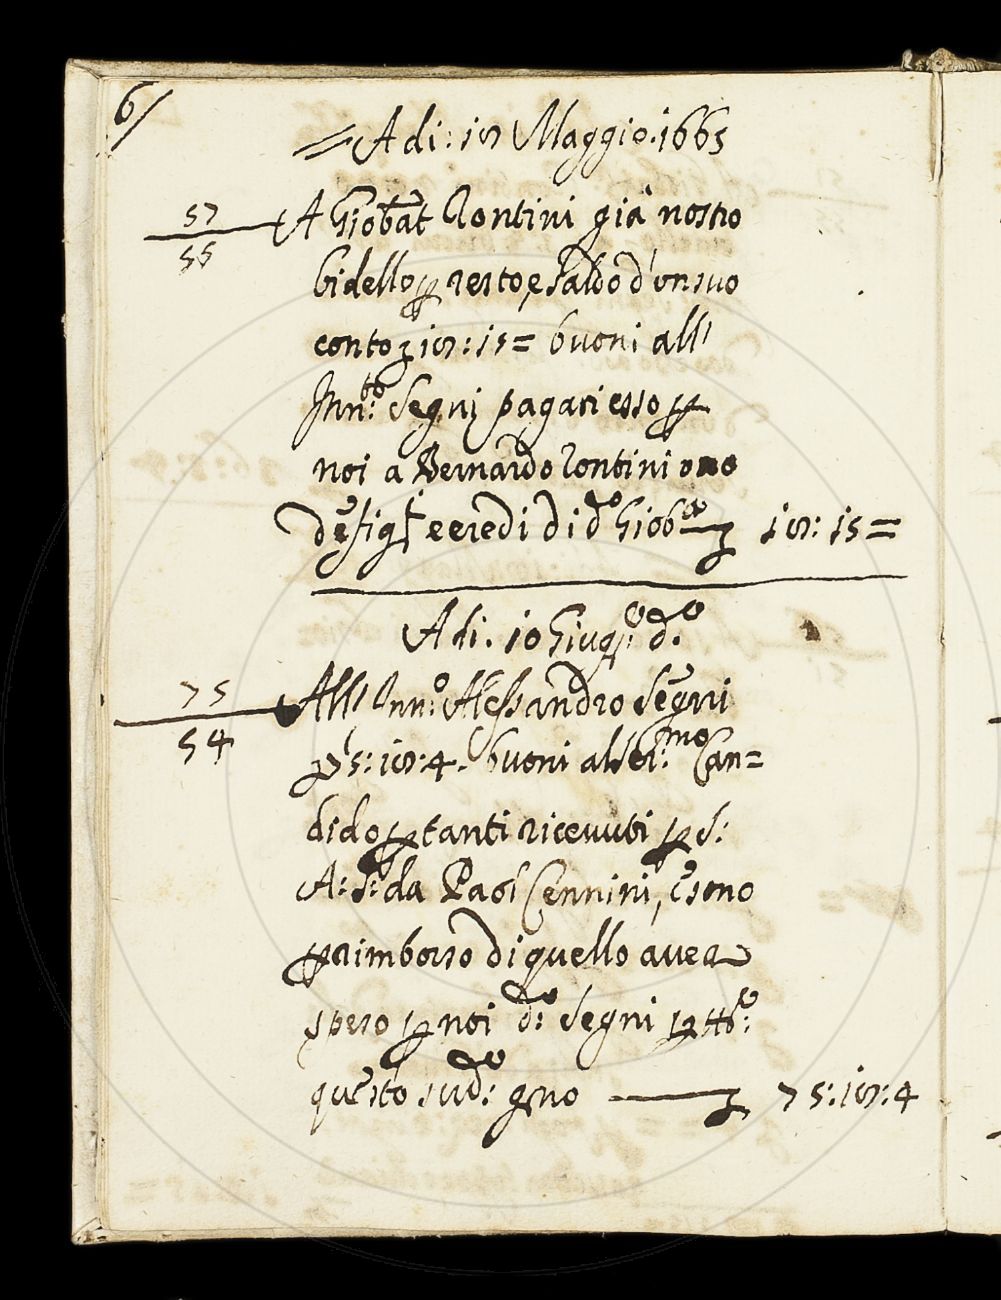 6/
= Adi: 10 Maggio. 1665
57
55
A Giobat Rontini già nostro
bidello p resto, e saldo d'un suo
conto 10: 15 = buoni all'
Inn: Segni pagati esso p
noi a Bernardo Rontini uno
de figl e eredi di d.º Giob.ª 10: 15 =
Adi. 10 Giug.º d.º
75
54
All' Inn:º Alessandro Segni
75: 10: 4. buoni al Ser:mo Can=
dido p tanti ricevuti p S:
A: S: da Paol Cennini, e sono
p rimborso di quello avea
speso p noi d:º Segni p tt.º
questo sud:º gno 75: 10: 4